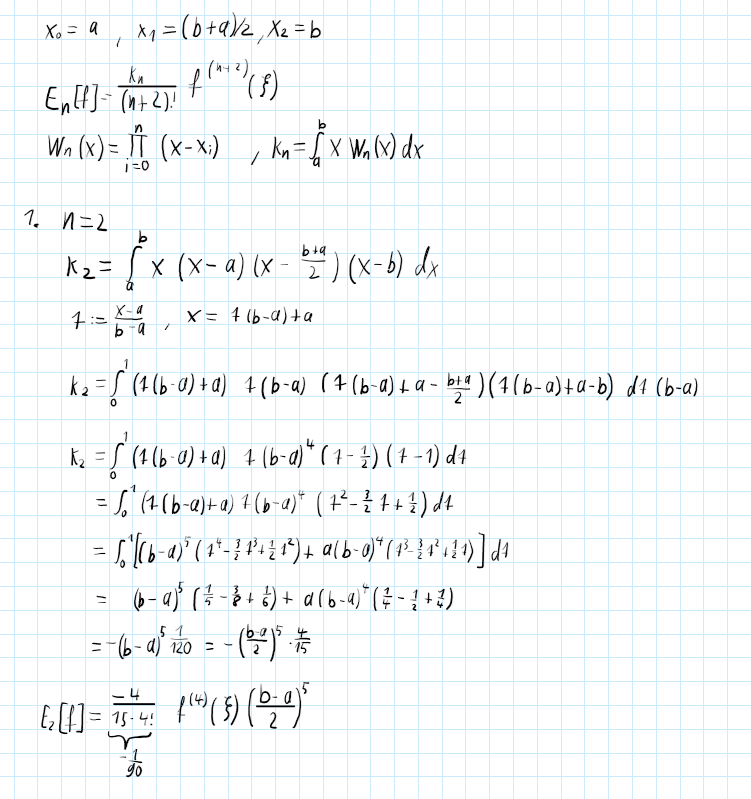 x₀ = a , x₁ = (b+a)/2 , x₂ = b
Eₙ[f] = kₙ/(n+2)! f⁽ⁿ⁺²⁾(ξ)
Wₙ(x) = ∏_{i=0}^{n} (x-xᵢ) , kₙ = ∫_a^b x Wₙ(x) dx
1. n=2
k₂ = ∫_a^b x (x-a) (x - (b+a)/2) (x-b) dx
t := (x-a)/(b-a) , x = t(b-a)+a
k₂ = ∫_0^1 (t(b-a)+a) t(b-a) (t(b-a)+a - (b+a)/2)(t(b-a)+a-b) dt (b-a)
k₂ = ∫_0^1 (t(b-a)+a) t(b-a)⁴ (t - 1/2)(t-1) dt
= ∫_0^1 (t(b-a)+a) t(b-a)⁴ (t² - 3/2 t + 1/2) dt
= ∫_0^1 [(b-a)⁵ (t⁴ - 3/2 t³ + 1/2 t²) + a(b-a)⁴ (t³ - 3/2 t² + 1/2 t)] dt
= (b-a)⁵ (1/5 - 3/8 + 1/6) + a(b-a)⁴ (1/4 - 1/2 + 1/4)
= -(b-a)⁵ 1/120 = -((b-a)/2)⁵ · 4/15
E₂[f] = -4/(15·4!) f⁽⁴⁾(ξ) ((b-a)/2)⁵
-1/90